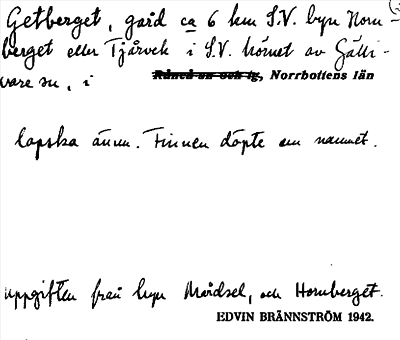 Getberget, gård ca 6 km S.V. byn Horn-
berget eller Tjårvek i S.V. hörnet av Gälli-
vare sn, i
Råneå sn och tg, Norrbottens län
lapska ännu. Finnen döpte om namnet.
uppgiften från byn Mårdsel, och Hornberget.
EDVIN BRÄNNSTRÖM 1942.